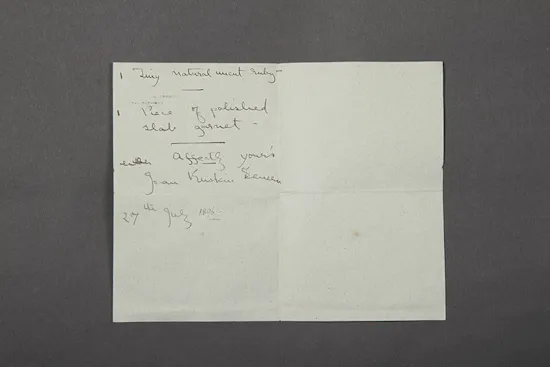 1 Tiny natural uncut ruby —
1 Piece of polished
slab garnet —
Affectly your's
Joan Ruskin Severn
27th July